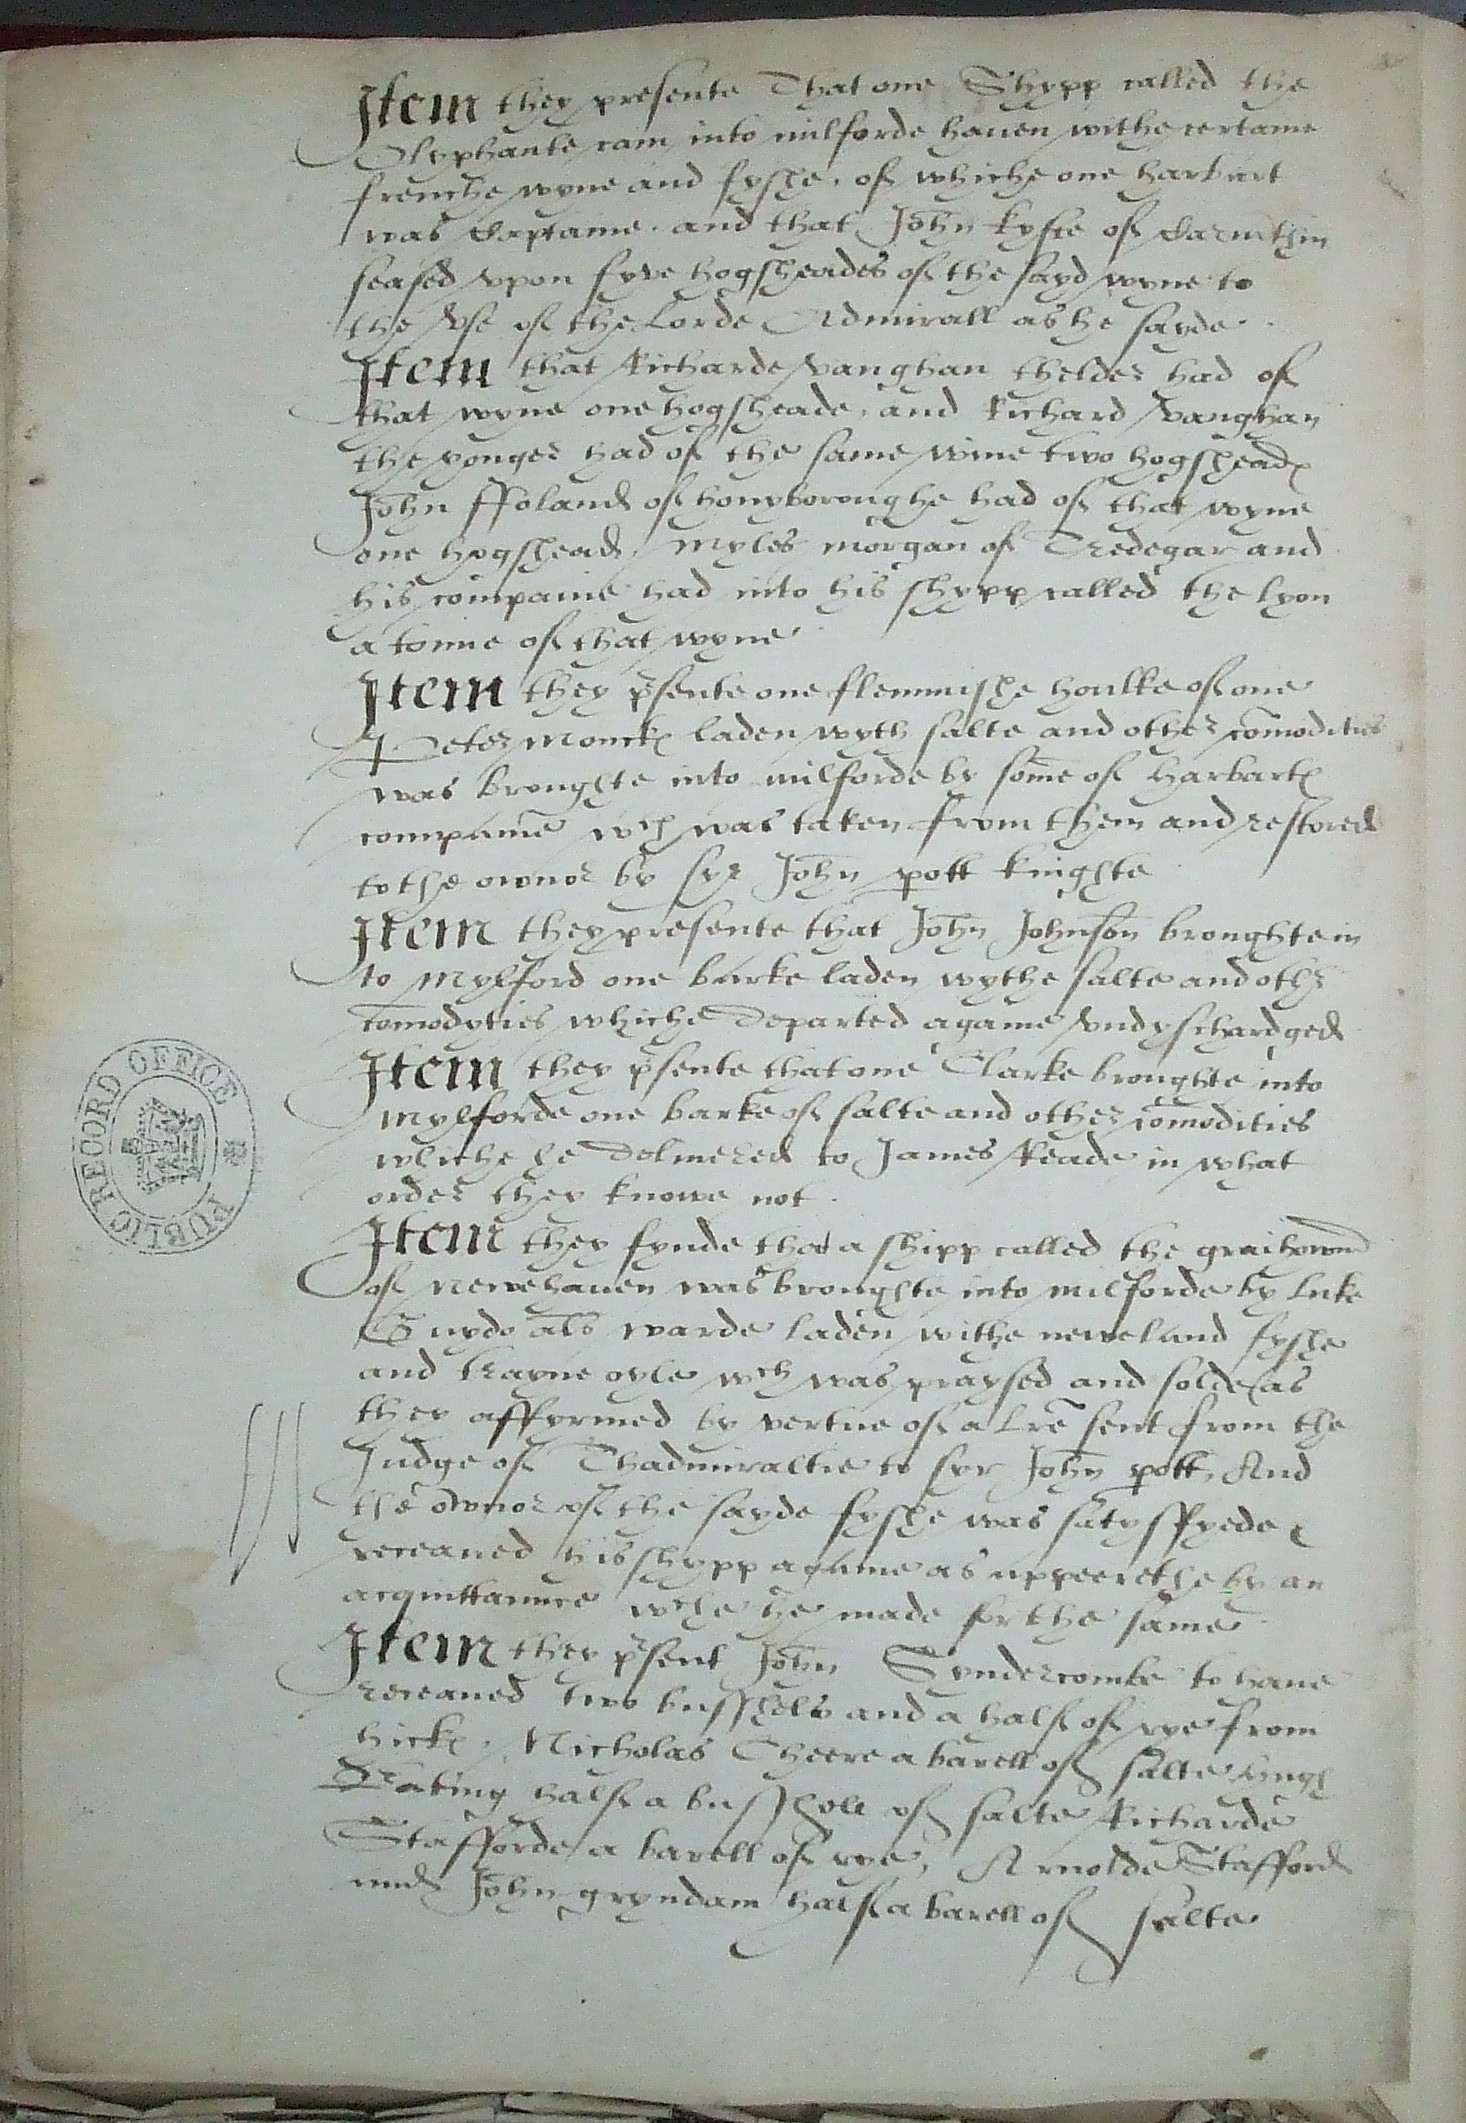 Item they presente That one Shypp called the
Olyphante cam into milforde hauen withe certaine
frenche wyne and fyshe, of whiche one harburt
was Captaine. and that John kyfte of Carmthin
seased vpon fyve hogsheades of the sayd wyne to
the vse of the Lorde Admirall as he sayde.
Item that Richarde vaughan thelder had of
that wyne one hogsheade, and Richard vaughan
the yonger had of the same wine two hogsheades
John ffoland of honyboroughe had of that wyne
one hogshead, Myles morgan of Tredegar and
his compaine had into his shypp called the Lyon
a tonne of that wyne
Item they psente one flemmishe houlke of one
Peter Monckes laden wyth salte and other comodities
was broughte into milforde by some of Harbartes
compaine wch was taken from them and restored
to the owner by syr John pott knighte
Item they presente that John Johnson broughte in
to Mylford one barke laden wythe salte and other
comodyties whiche departed againe vndyschardged
Item they psente that one Clarke broughte into
Mylforde one barke of salte and other comodities
whiche he deliuered to James Reade in what
order they knowe not.
Item they fynde that a shipp called the graihownd
of newehauen was broughte into milforde by luke
Guydo als warde laden withe neweland fyshe
and trayne oyle wch was praysed and solde as
they affyrmed by vertue of a lre sent from the
Judge of Thadmiraltie to syr John pott, And
the owner of the sayde fyshe was satysffyede &
receaued his shypp againe as appeerethe by an
acquittaunce wche he made for the same
Item they psent John Syndercombe to haue
receaued two busshels and a half of rye from
hickes. Nicholas Cheere a barell of salte hugh
Keating half a busshell of salte Richarde
Stafforde a barell of rye, Arnolde Stafford
and John gryndam half a barell of salte
PUBLIC RECORD OFFICE